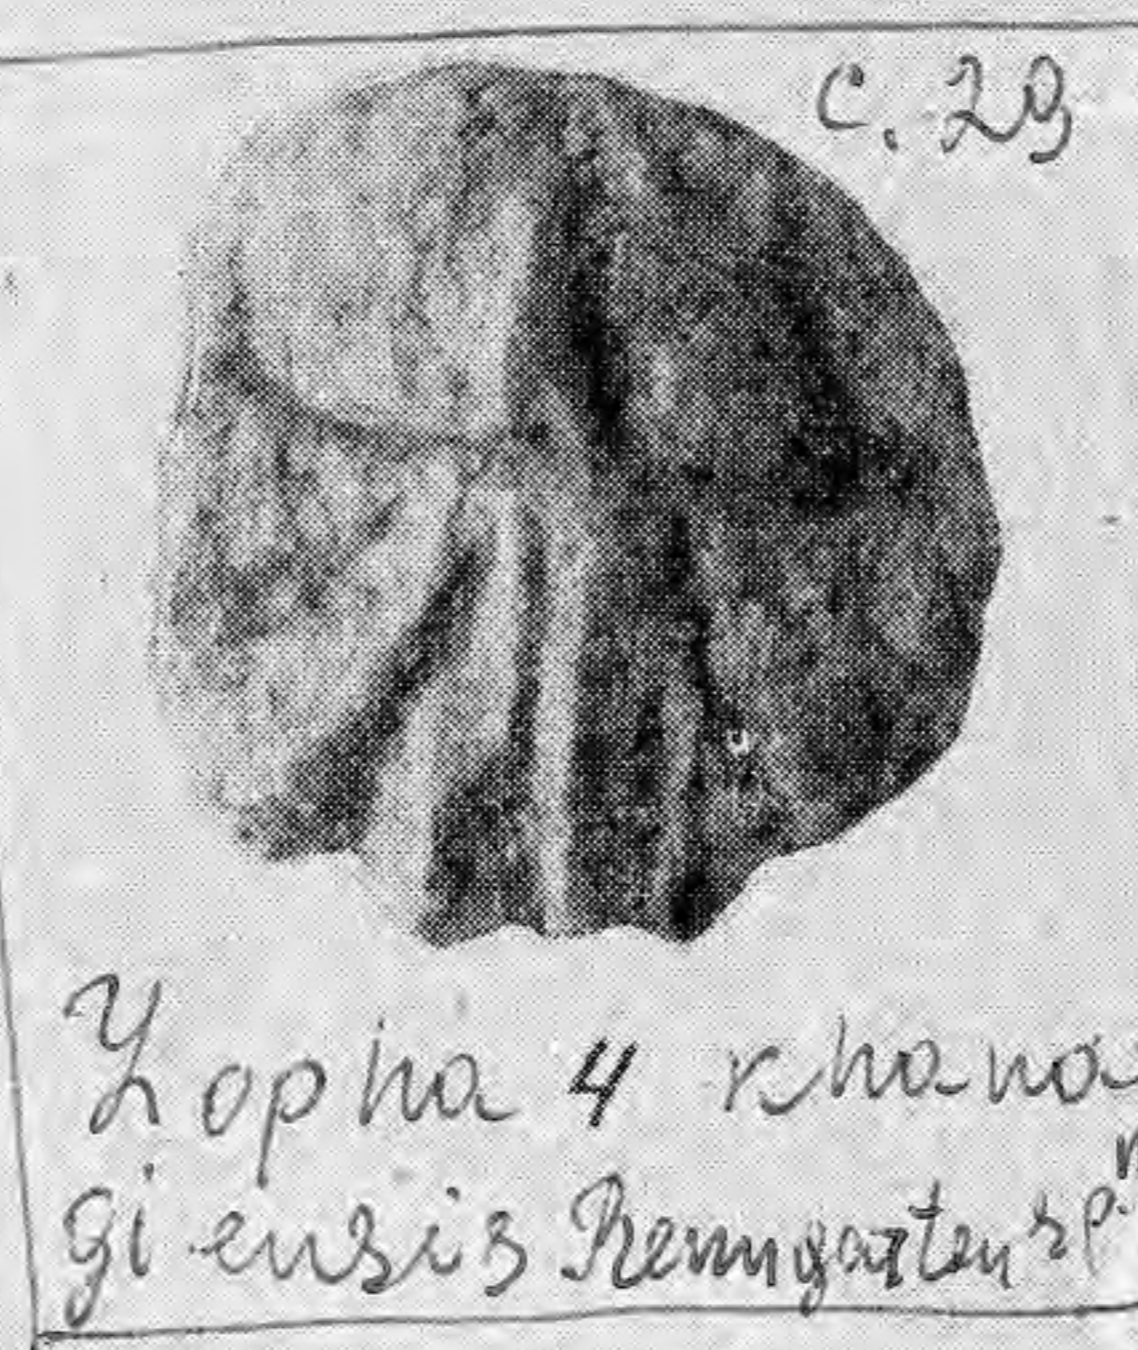 с. 29
Lopha 4 khana
giensis Renngarten sp. n